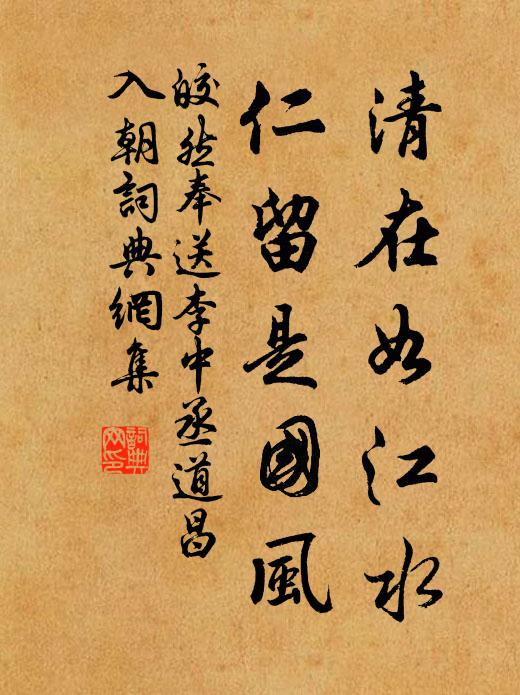 清在如江水
仁留是國風
皎然奉送李中丞道昌
入朝詞典網集
詞典網印